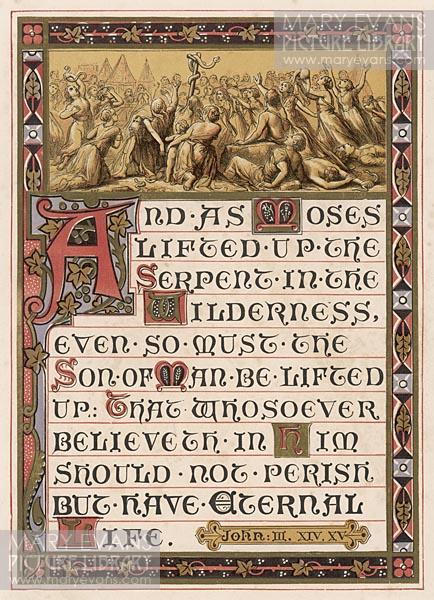 MARY EVANS
PICTURE LIBRARY
www.maryevans.com
AND·AS MOSES
LIFTED·UP·THE
SERPENT·IN·THE
WILDERNESS,
EVEN·SO·MUST·THE
SON·OF MAN·BE·LIFTED
UP: THAT WHOSOEVER
BELIEVETH·IN HIM
SHOULD·NOT·PERISH
BUT·HAVE·ETERNAL
LIFE.
JOHN: III. XIV, XV
MARY EVANS
PICTURE LIBRARY
www.maryevans.com